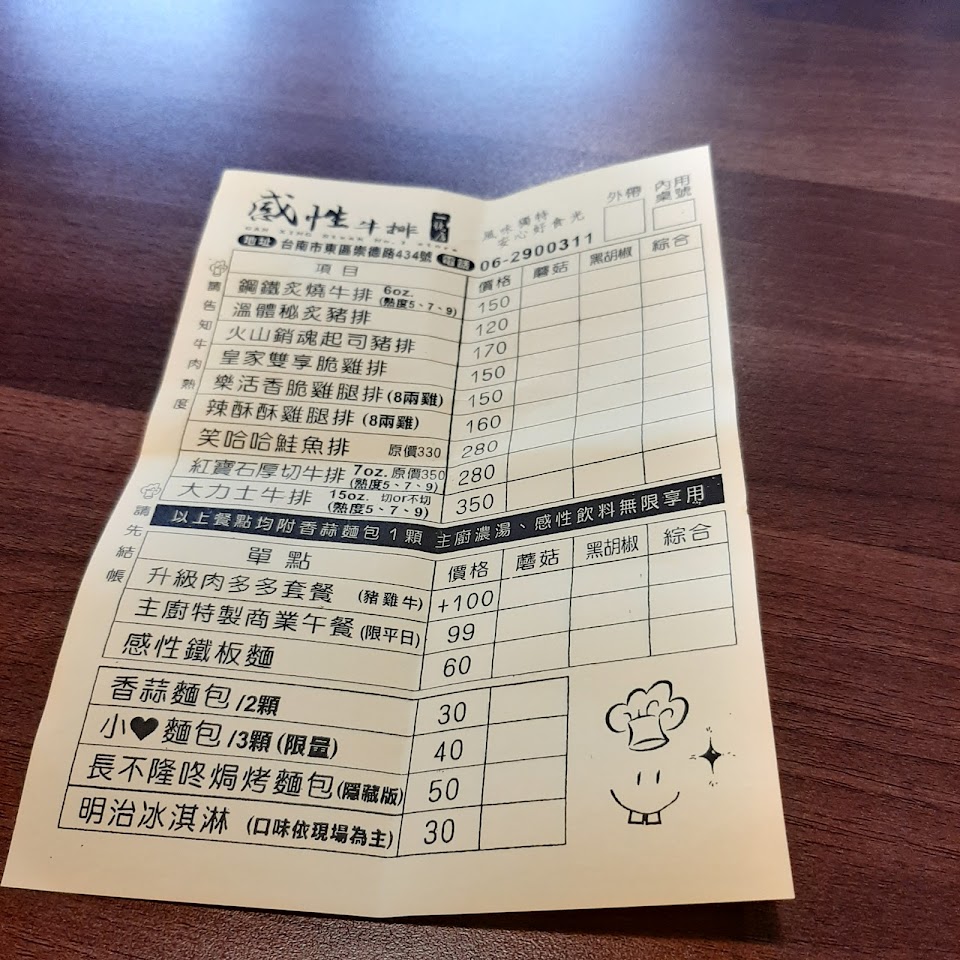 感性牛排 一號店
風味獨特
安心好食光
外帶
內用
桌號
地址 台南市東區崇德路434號 電話 06-2900311
請告知牛肉熟度
項目 價格 蘑菇 黑胡椒 綜合
鋼鐵炙燒牛排 6oz. (熟度5、7、9) 150
溫體秘炙豬排 120
火山銷魂起司豬排 170
皇家雙享脆雞排 150
樂活香脆雞腿排(8兩雞) 150
辣酥酥雞腿排(8兩雞) 160
笑哈哈鮭魚排 原價330 280
紅寶石厚切牛排 7oz. 原價350 (熟度5、7、9) 280
大力士牛排 15oz. 切or不切 (熟度5、7、9) 350
以上餐點均附香蒜麵包1顆 主廚濃湯、感性飲料無限享用
請先結帳
單點 價格 蘑菇 黑胡椒 綜合
升級肉多多套餐 (豬雞牛) +100
主廚特製商業午餐(限平日) 99
感性鐵板麵 60
香蒜麵包/2顆 30
小♥麵包/3顆(限量) 40
長不隆咚焗烤麵包(隱藏版) 50
明治冰淇淋 (口味依現場為主) 30